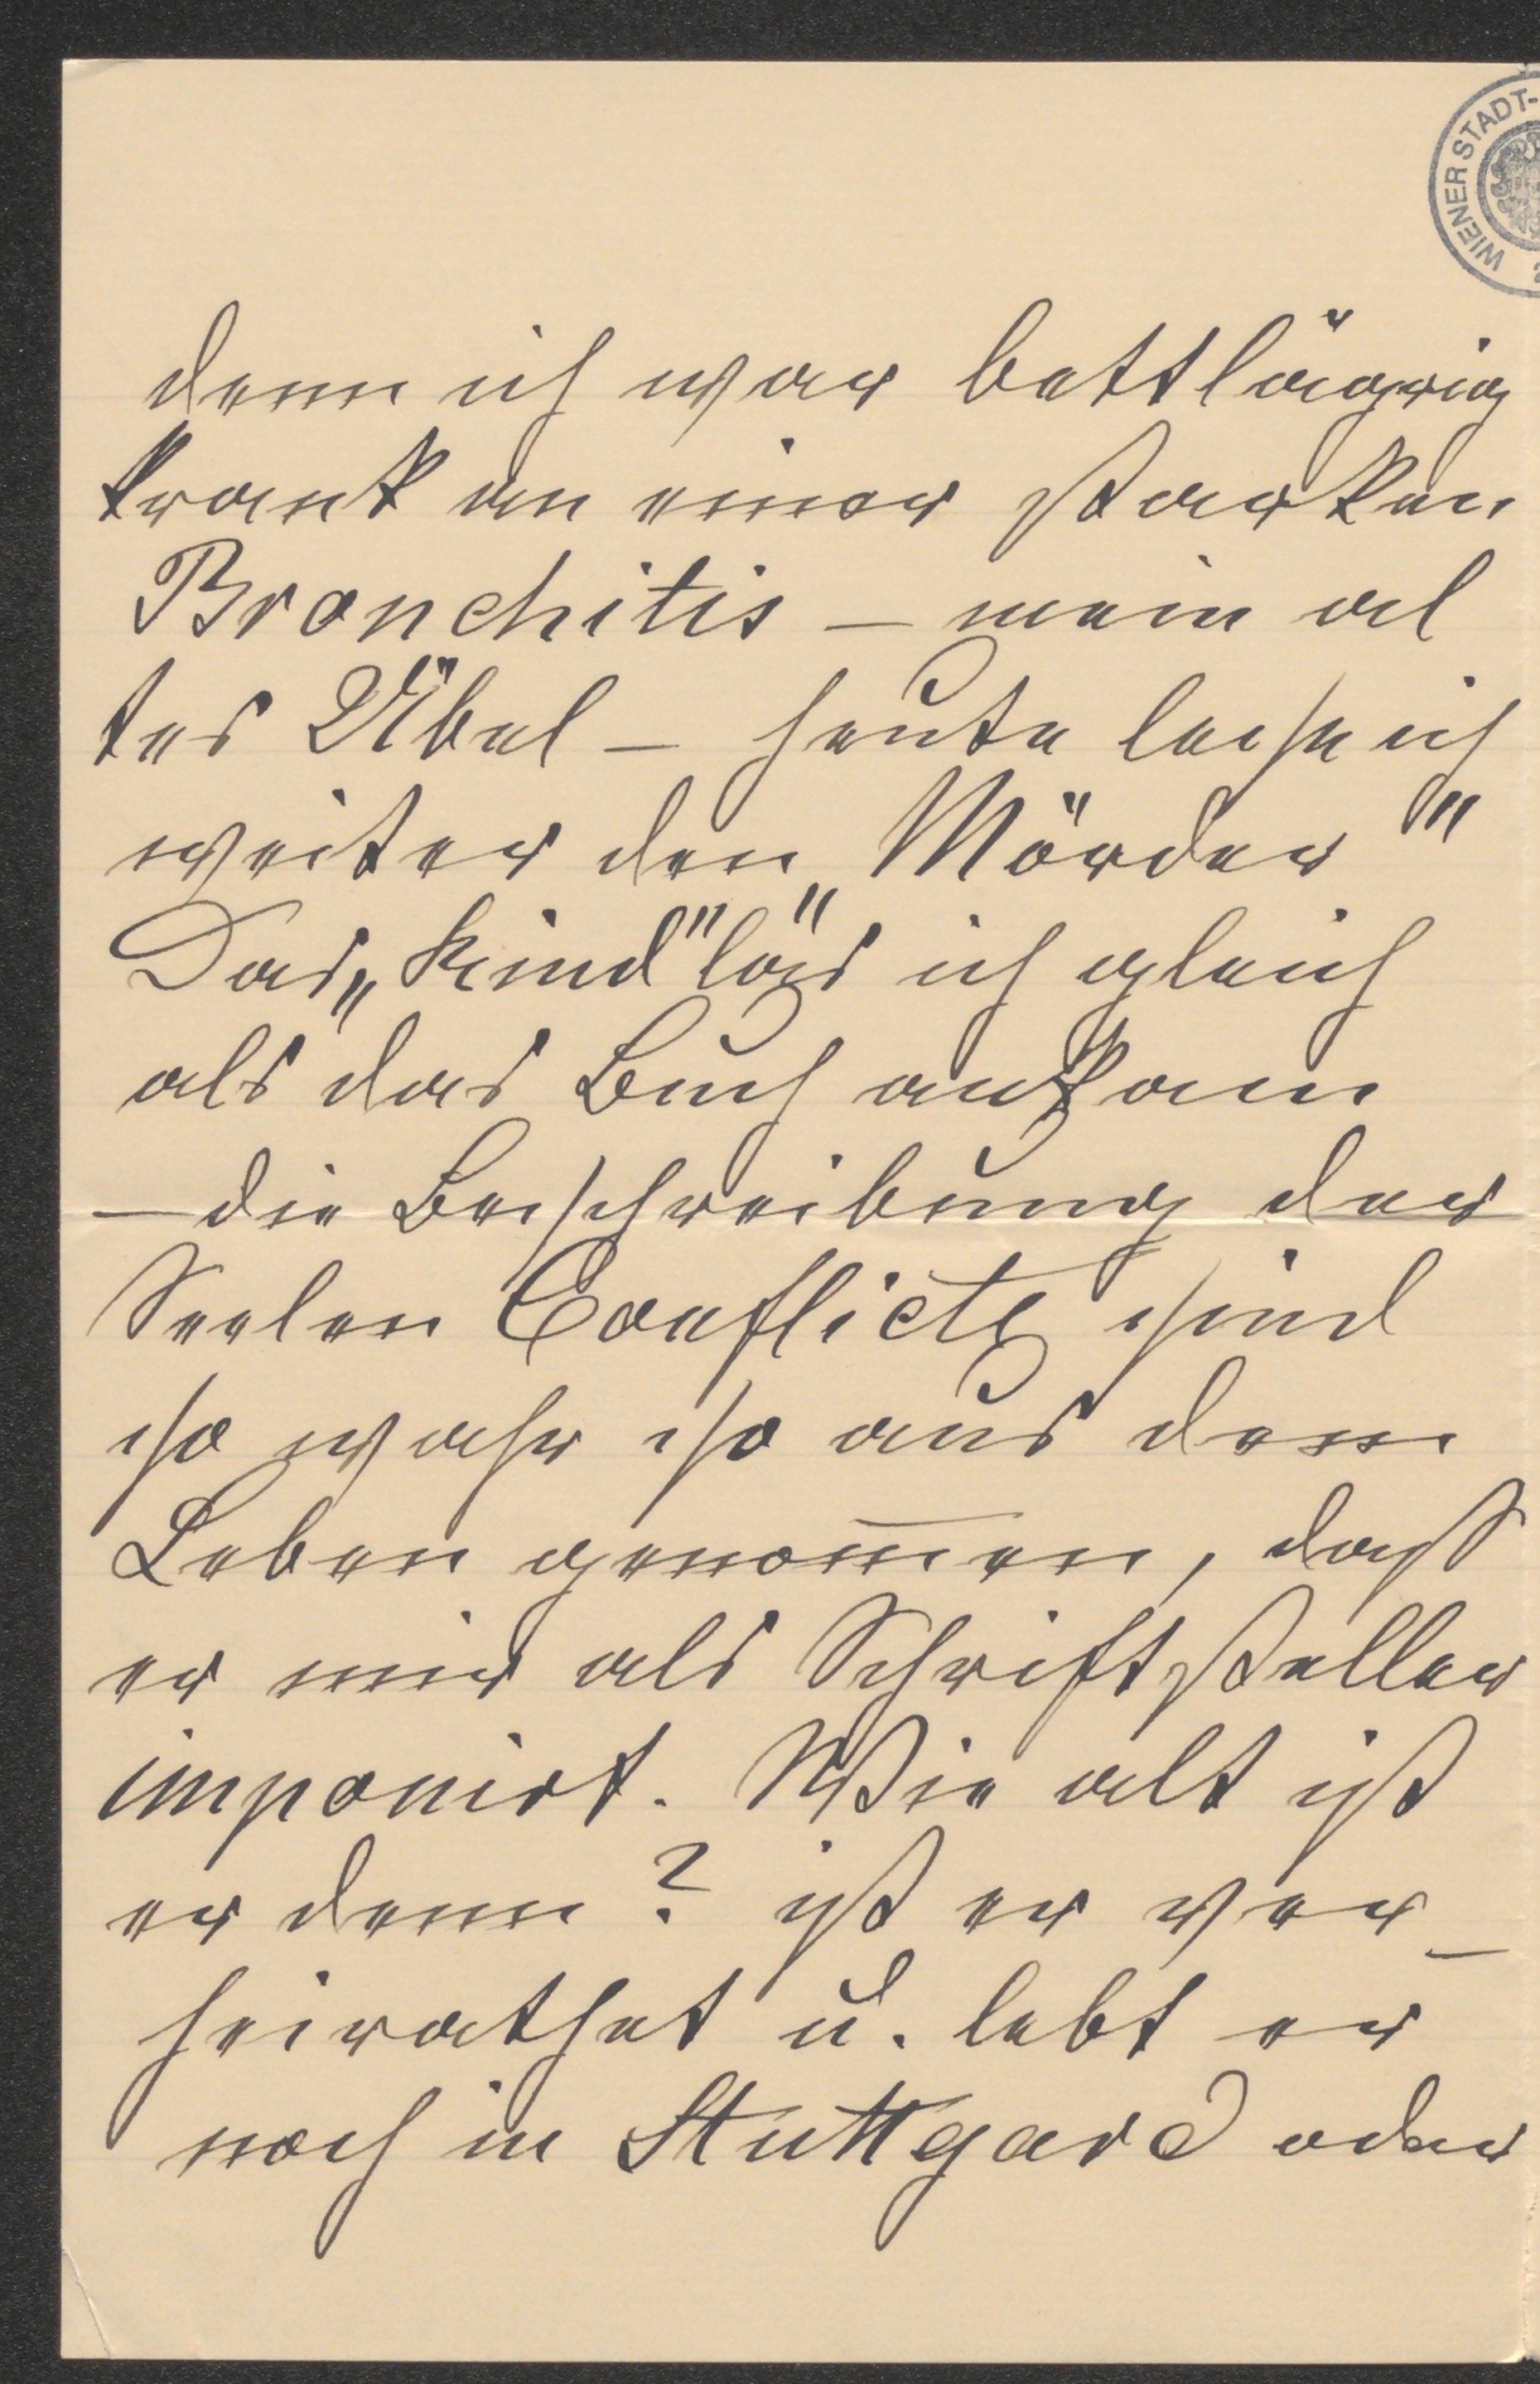 WIENER STADT-
denn ich war bettlägrig
krank an einer starken
Bronchitis – mein al
tes Übel – heute lese ich
weiter den „Mörder"
Das „Kind" läs ich gleich
als das Buch ankam
– die Beschreibung der
Seelen Conflicte sind
so wahr so aus dem
Leben genom̅en, daß
er mir als Schriftsteller
imponirt. Wie alt ist
er denn? ist er ver_
heirathet u. lebt er
noch in Stuttgard oder